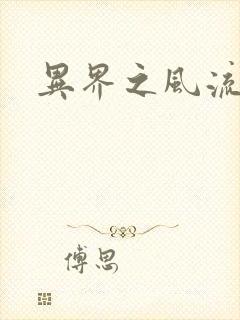 異界之風流
傅思